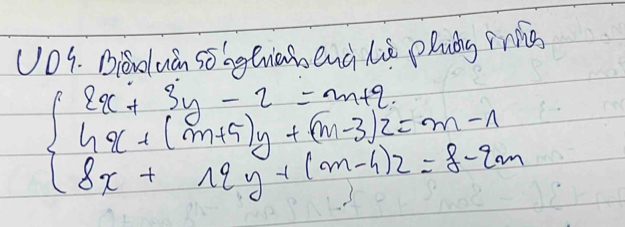 VD4. Biện luận số nghiệm của hệ phương trình
2x + 3y - z = m+2.
4x + (m+5)y + (m-3)z = m - 1
8x + 12y + (m-4)z = 8-2m